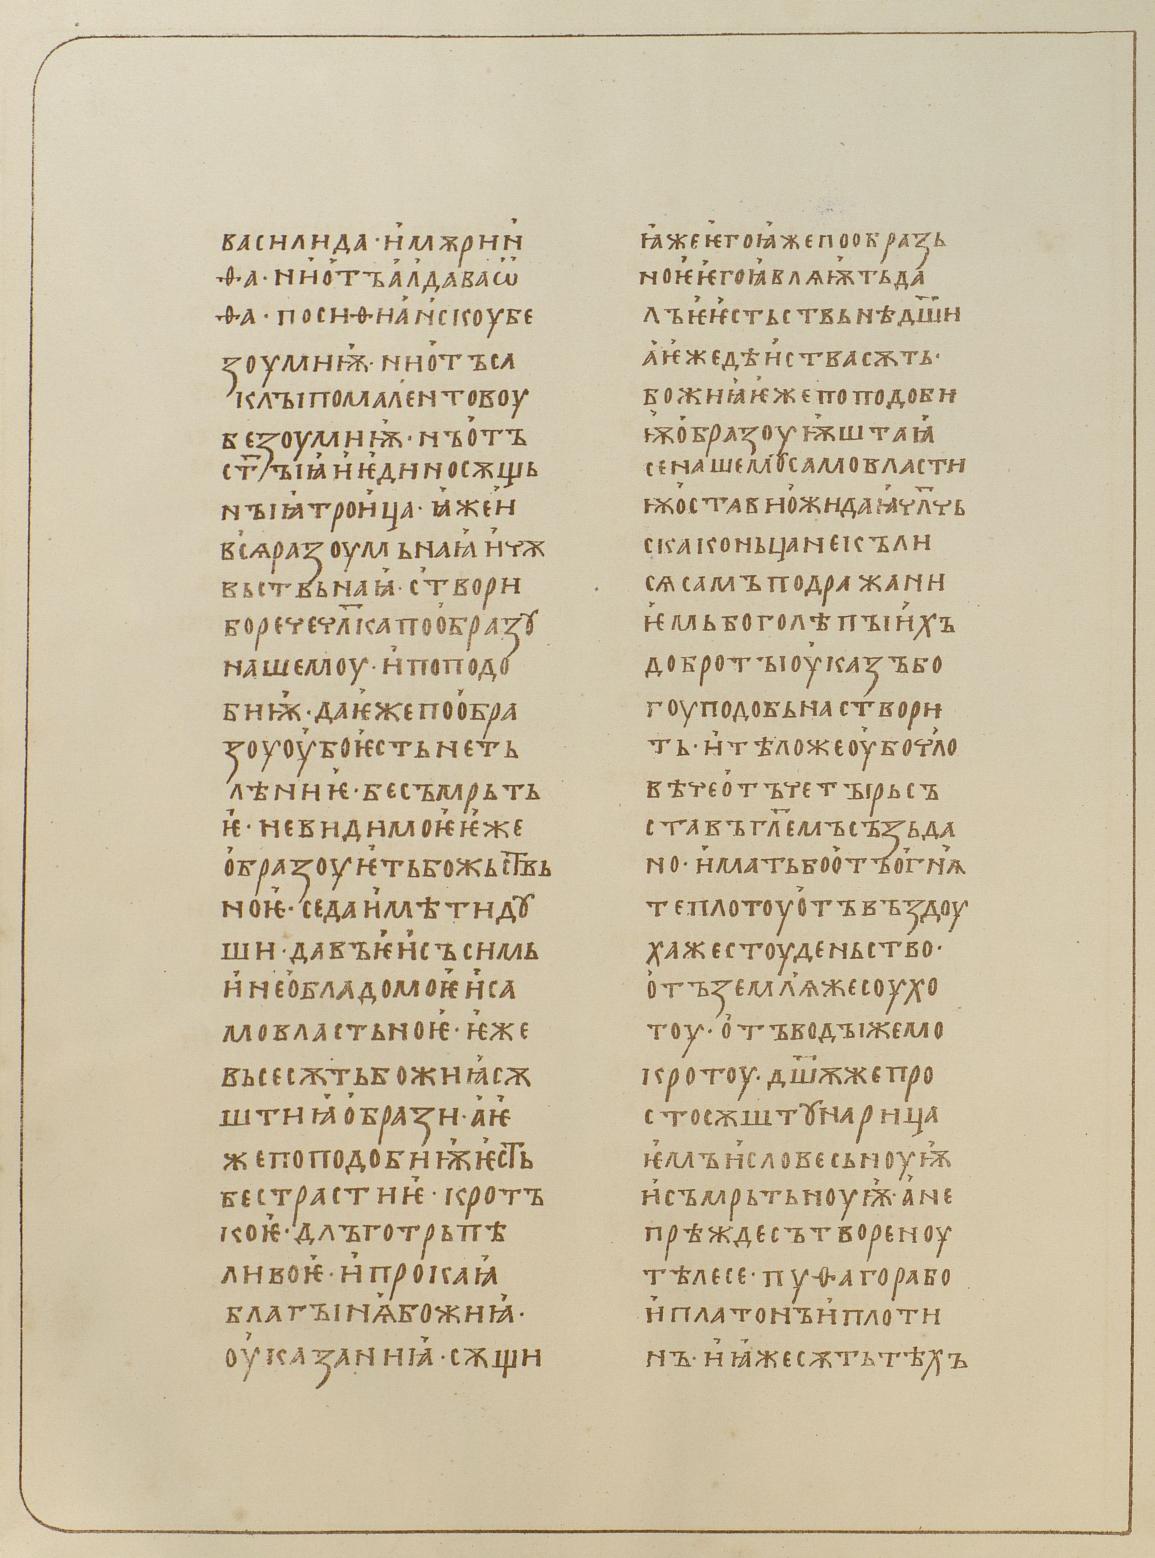 василида · и҆мѫрии҆
ѳа · ни҆о҆тъа҆лдаваѡ҆
ѳа · посиѳиа҆и҆скоубе
зоумиѭ · нио҆тъсл
клъіпомале́нтовоу
безоумиѭ · нъо҆тъ
ст҃ъіꙗи҆ѥ҆диносѫщь
нъіꙗ҆трои҆ца · ꙗ҆жеи҆
вс҆ѧразоумьнаꙗ҆и҆чѫ
вьствьнаꙗ҆ · с҆твори
боречечл҃капоо҆бразꙋ
нашемоу · и҆поподо
биѭ҆ · даѥ҆жепоо҆бра
зоуоу҆боѥ҆стьнеть
лѣниѥ҆ · бесъмрьть
ѥ҆ · невидимоѥ҆ѥ҆же
о҆бразоуѥ҆тьбожьств҃ь
ноѥ҆ · седаи҆мѣтидꙋ
ши · давъѥ҆и҆съсимь
и҆нео҆бладомоѥ҆и҆са
мовластьноѥ҆ · ѥ҆же
вьсесѫтьбожиꙗ҆сѫ
штиꙗ҆о҆брази · а҆ѥ҆
жепоподобиѭ҆ѥ҆ст҃ь
бестрастиѥ҆ · кротъ
коѥ҆ · длъготрьпѣ
ливоѥ҆ · и҆прокаꙗ҆
благъінѧ҆божиꙗ҆ ·
оу҆казанниꙗ҆ · сѫщи
ꙗ҆жеѥ҆гоꙗ҆жепообразь
ноѥ҆ѥ҆гоꙗ҆влѧѭ҆тьда
лъѥ҆ѥ҆стьствьнѣдш҃и
а҆ѥ҆жедѣи҆ствасѫть ·
божиꙗ҆ѥ҆жепоподоби
ѭ҆о҆бразоуѭ҆штаꙗ҆
сенашемꙋ҆самовласти
ѭ҆о҆ставио҆жидаꙗ҆чл҃чь
скаконьцанекъли
сѧсамъподражани
ѥ҆мьбоголѣпъіи҆хъ
добротъіоу҆казъбо
гоуподобьнаствори
ть · и҆тѣложеоу҆бочл҃о
вѣчео҆тъчетъірьсъ
ставъгл҃емъсъзьда
но · и҆мматьбоо҆тъо҆гн҆ѧ
теплотоуо҆тъвъздоу
хажестоуденьство ·
о҆тъземл҆ѧжесоухо
тоу · о҆тъводъіжемо
кротоу · дш҃ѫжепро
стосѫштꙋнарица
ѥ҆мъи҆словесьноуѭ҆
и҆съмрьтьноуѭ҆ · а҆не
прѣждесътвореноу
тѣлесе · пуѳагорабо
и҆платонъи҆плоти
нъ · и҆ꙗ҆жесѫтьтѣхъ